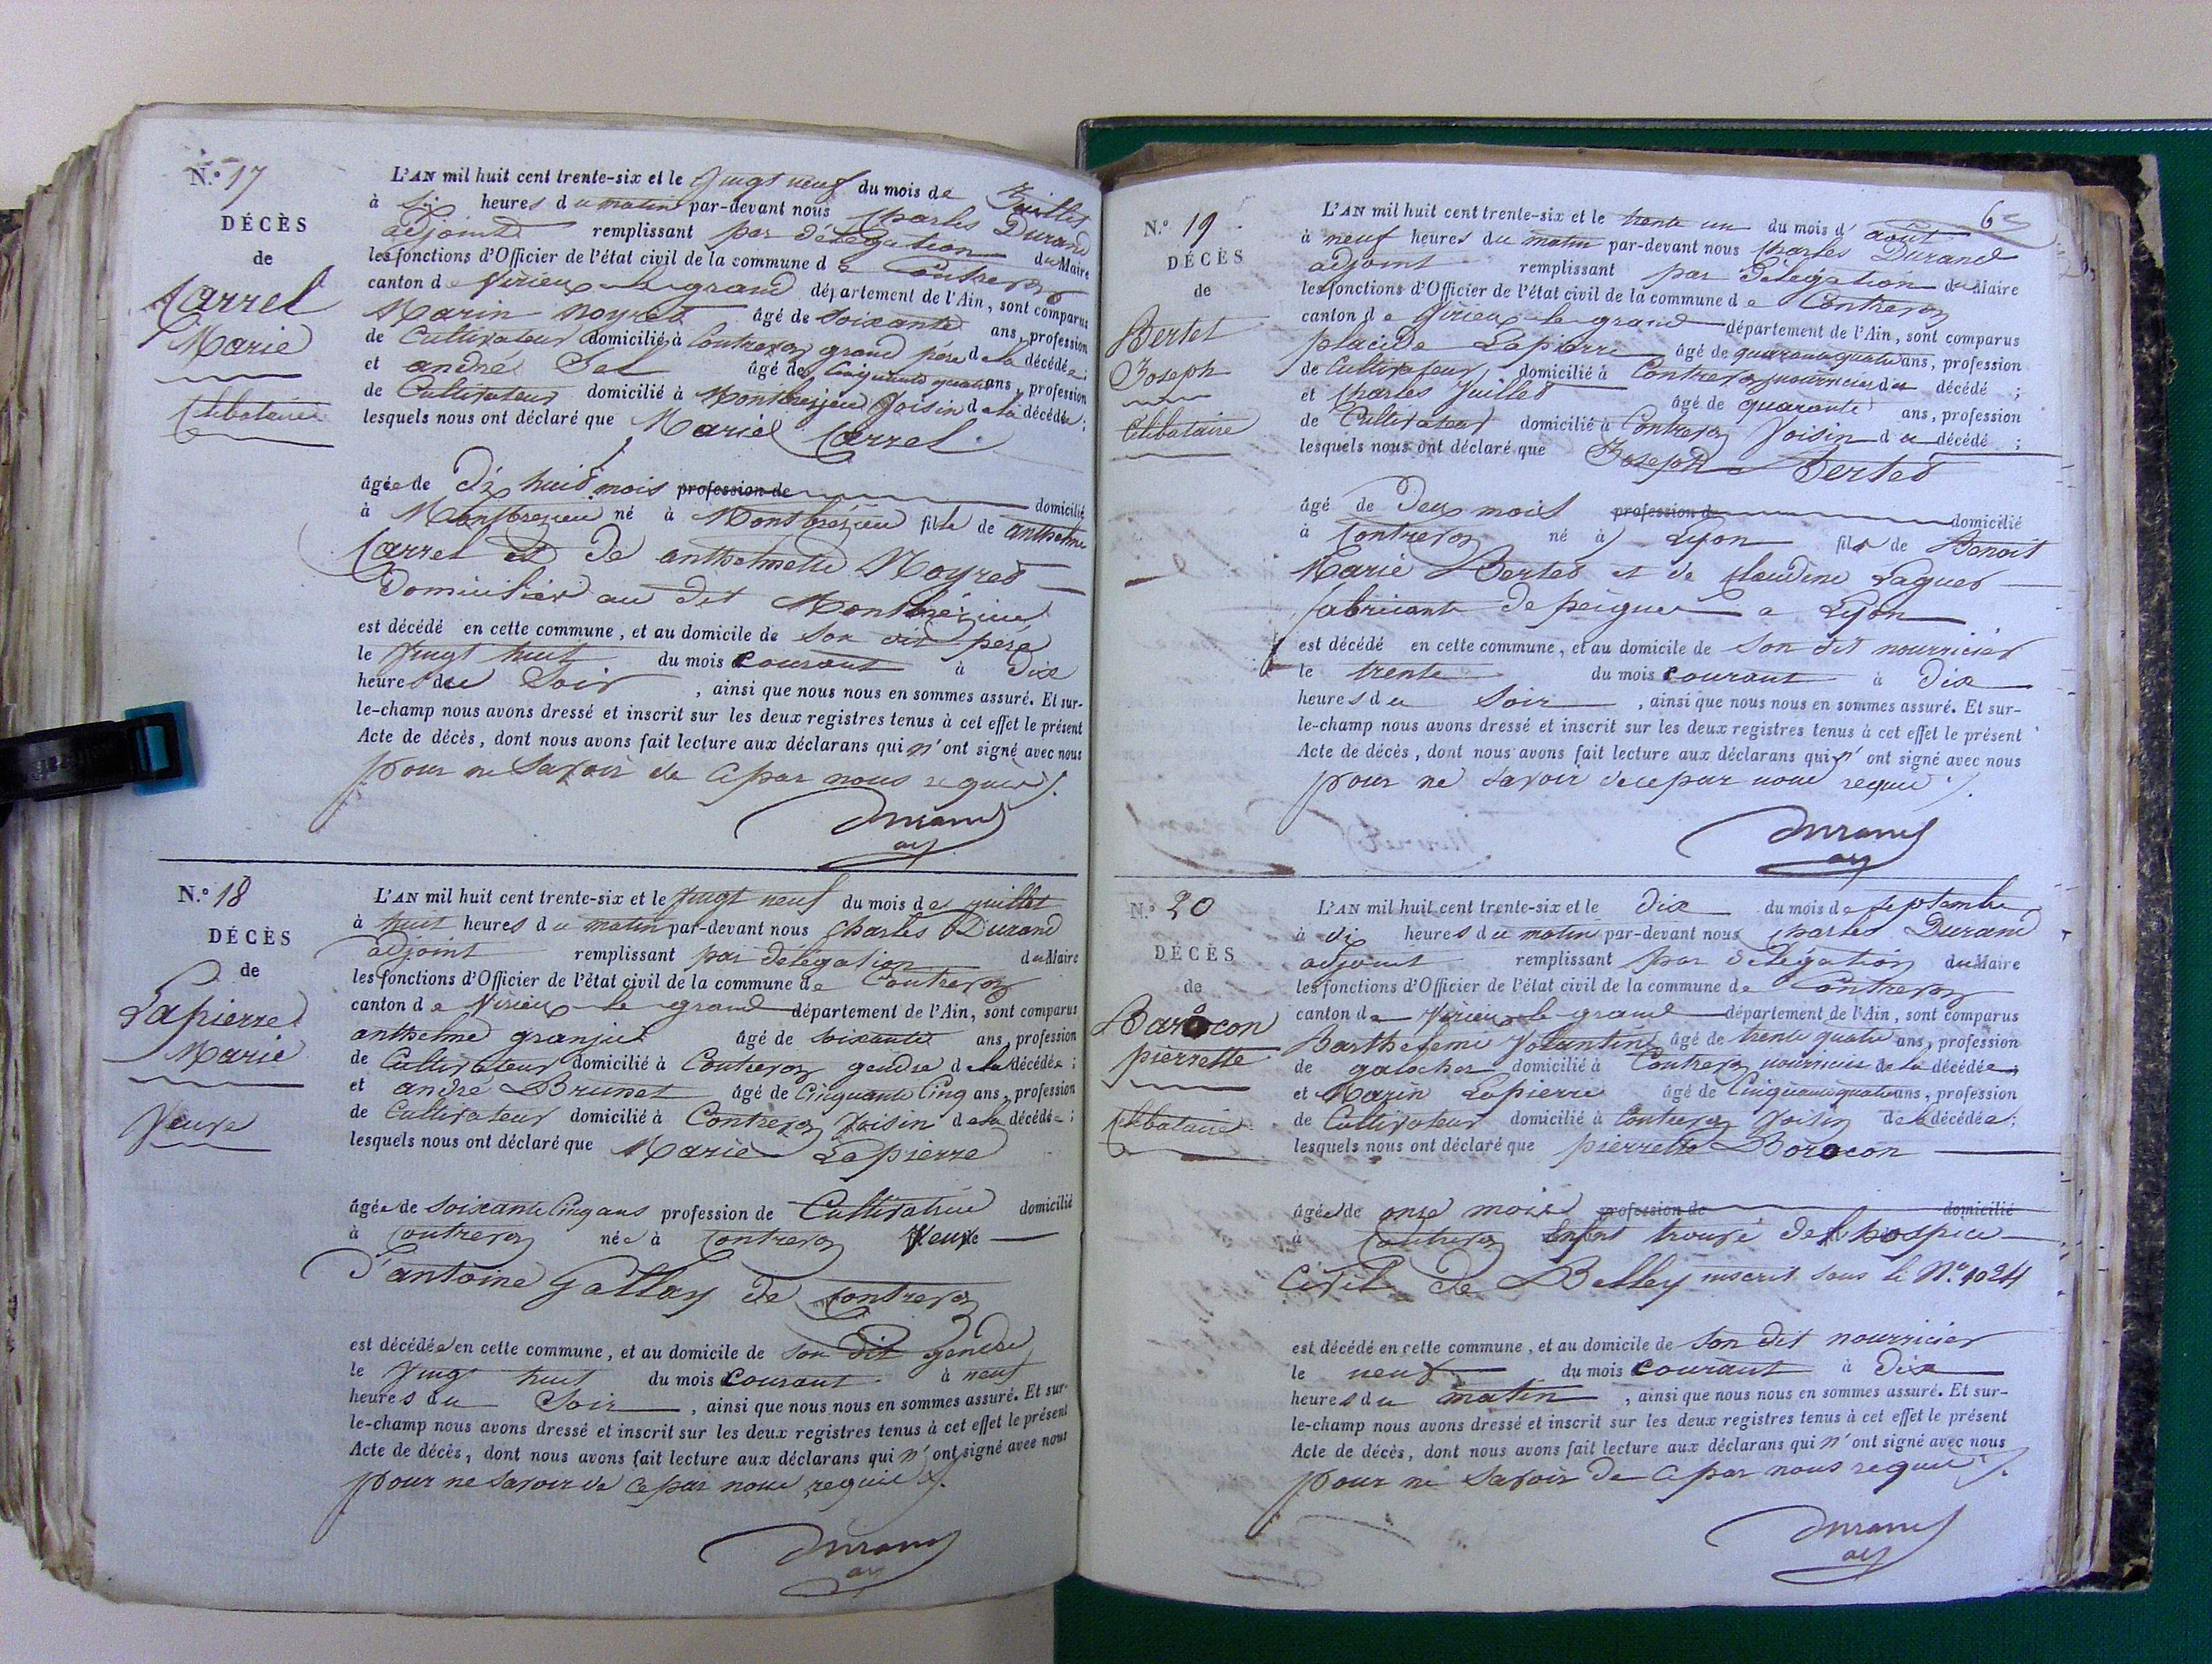 N.° 17
DÉCÈS
de
Carrel
Marie
Célibataire
L'AN mil huit cent trente-six et le vingt neuf du mois de Juillet
à six heures du matin par-devant nous Charles Durand
adjoint remplissant par délégation du Maire
les fonctions d'Officier de l'état civil de la commune de Contrevoz
canton de Virieu le grand département de l'Ain, sont comparus
Marin Moyret âgé de soixante ans, profession
de Cultivateur domicilié à Contrevoz grand père de la décédée;
et andré Sel âgé de Cinquante quatre ans, profession
de Cultivateur domicilié à Montbrezieu Voisin de la décédée;
lesquels nous ont déclaré que Marie Carrel
âgée de dix huit mois profession de domicilié
à Montbrezieu né à Montbrezieu fille de anthelme
Carrel et de anthelmette Moyret
Domiciliés au dit Montbrézieu
est décédé en cette commune, et au domicile de son père
le vingt huit du mois Courant à dix
heures du Soir, ainsi que nous nous en sommes assuré. Et sur-
le-champ nous avons dressé et inscrit sur les deux registres tenus à cet effet le présent
Acte de décès, dont nous avons fait lecture aux déclarans qui n'ont signé avec nous
pour ne savoir de ce par nous requis
Durand
adj
N.° 18
DÉCÈS
de
Lapierre
Marie
Veuve
L'AN mil huit cent trente-six et le vingt neuf du mois de juillet
à huit heures du matin par-devant nous Charles Durand
adjoint remplissant par délégation du Maire
les fonctions d'Officier de l'état civil de la commune de Contrevoz
canton de Virieu le grand département de l'Ain, sont comparus
anthelme granjut âgé de soixante ans, profession
de Cultivateur domicilié à Contrevoz gendre de la décédée;
et andré Brunet âgé de Cinquante Cinq ans, profession
de Cultivateur domicilié à Contrevoz Voisin de la décédée;
lesquels nous ont déclaré que Marie Lapierre
âgée de soixante Cinq ans profession de Cultivatrice domicilié
à Contrevoz née à Contrevoz Veuve
d'antoine Gallay de Contrevoz
est décédée en cette commune, et au domicile de son dit gendre
le vingt huit du mois Courant à neuf
heures du Soir, ainsi que nous nous en sommes assuré. Et sur-
le-champ nous avons dressé et inscrit sur les deux registres tenus à cet effet le présent
Acte de décès, dont nous avons fait lecture aux déclarans qui n'ont signé avec nous
pour ne savoir de ce par nous requis
Durand
adj
N.° 19
DÉCÈS
de
Bertet
Joseph
Célibataire
L'AN mil huit cent trente-six et le trente un du mois d'août
à neuf heures du matin par-devant nous Charles Durand
adjoint remplissant par délégation du Maire
les fonctions d'Officier de l'état civil de la commune de Contrevoz
canton de Virieu le grand département de l'Ain, sont comparus
placide Lapierre âgé de quarante quatre ans, profession
de Cultivateur domicilié à Contrevoz nourricier du décédé;
et Charles Juillet âgé de quarante ans, profession
de Cultivateur domicilié à Contrevoz Voisin du décédé;
lesquels nous ont déclaré que Joseph Bertet
âgé de Deux mois profession de domicilié
à Contrevoz né à Lyon fils de Benoit
Marie Bertet et de Claudine Laguet
fabricants de peignes a Lyon
est décédé en cette commune, et au domicile de son dit nourricier
le trente du mois Courant à dix
heures du Soir, ainsi que nous nous en sommes assuré. Et sur-
le-champ nous avons dressé et inscrit sur les deux registres tenus à cet effet le présent
Acte de décès, dont nous avons fait lecture aux déclarans qui n'ont signé avec nous
pour ne savoir de ce par nous requis
Durand
adj
N.° 20
DÉCÈS
de
Barocon
pierrette
Célibataire
L'AN mil huit cent trente-six et le dix du mois de septembre
à six heures du matin par-devant nous Charles Durand
adjoint remplissant par délégation du Maire
les fonctions d'Officier de l'état civil de la commune de Contrevoz
canton de Virieu le grand département de l'Ain, sont comparus
Barthelemi Volantin âgé de trente quatre ans, profession
de galocher domicilié à Contrevoz nourricier de la décédée;
et Marin Lapierre âgé de Cinquante quatre ans, profession
de Cultivateur domicilié à Contrevoz Voisin de la décédée;
lesquels nous ont déclaré que pierrette Borocon
âgée de onze mois profession de domicilié
à Contrevoz Enfant trouvé de l'hospice
Civil de Belley inscrit sous le N.° 1024
est décédé en cette commune, et au domicile de son dit nourricier
le neuf du mois Courant à dix
heures du matin, ainsi que nous nous en sommes assuré. Et sur-
le-champ nous avons dressé et inscrit sur les deux registres tenus à cet effet le présent
Acte de décès, dont nous avons fait lecture aux déclarans qui n'ont signé avec nous
pour ne savoir de ce par nous requis
Durand
adj